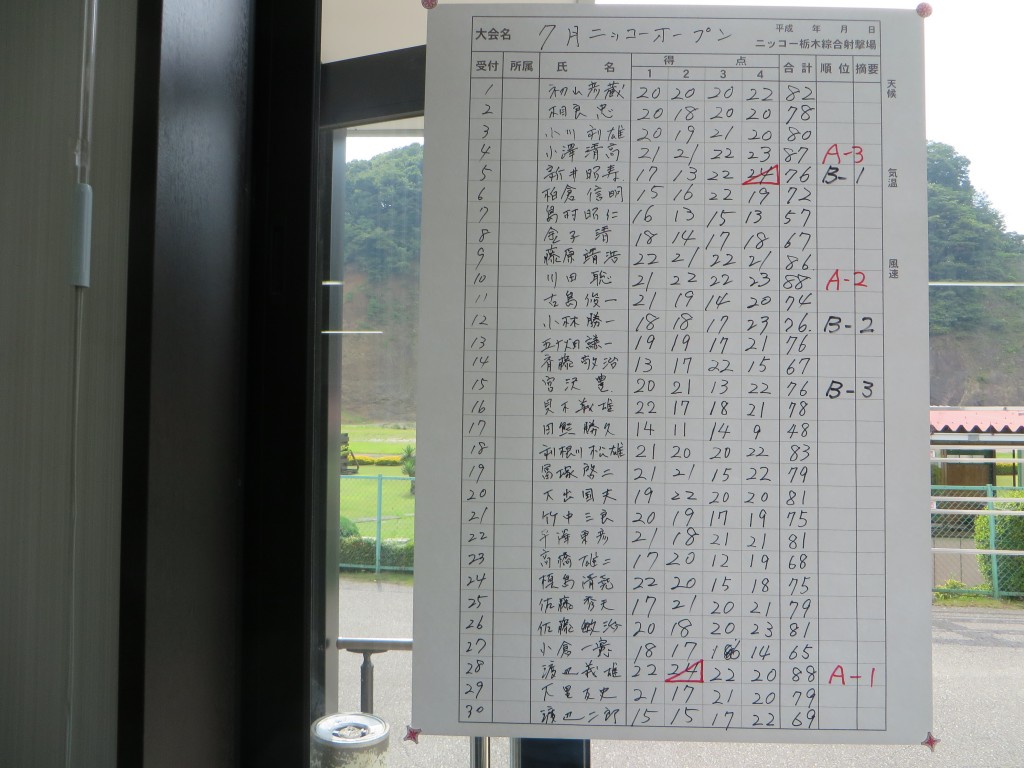 大会名 7月ニッコーオープン 平成 年 月 日
ニッコー栃木綜合射撃場
受付 所属 氏 名 得 点 合計 順位 摘要
1 2 3 4
天候
気温
風速
1 初山彦蔵 20 20 20 22 82
2 相良 忠 20 18 20 20 78
3 小川 利雄 20 19 21 20 80
4 小澤 清高 21 21 22 23 87 A-3
5 新井昭寿 17 13 22 24 76 B-1
6 柏倉 信明 15 16 22 19 72
7 島村昭仁 16 13 15 13 57
8 金子 清 18 14 17 18 67
9 藤原靖浩 22 21 22 21 86
10 川田 聡 21 22 22 23 88 A-2
11 古島俊一 21 19 14 20 74
12 小林 勝一 18 18 17 23 76. B-2
13 五十畑謙一 19 19 17 21 76
14 斉藤 敏治 13 17 22 15 67
15 宮沢 豊 20 21 13 22 76 B-3
16 義雄 22 17 18 21 78
17 田熊 勝久 14 11 14 9 48
18 利根川 松雄 21 20 20 22 83
19 冨塚啓二 21 21 15 22 79
20 大出国夫 19 22 20 20 81
21 竹中三良 20 19 17 19 75
22 平澤 21 18 21 21 81
23 高橋 雄二 17 20 12 19 68
24 22 20 15 18 75
25 佐藤 秀夫 17 21 20 21 79
26 佐藤敏治 20 18 20 23 81
27 小倉一 18 17 16 14 65
28 渡辺義雄 22 24 22 20 88 A-1
29 大里 21 17 21 20 79
30 渡辺二郎 15 15 17 22 69